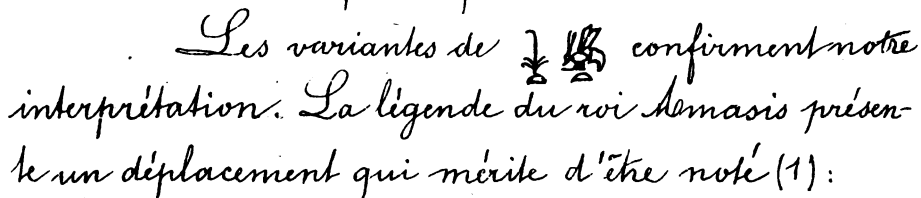 Les variantes de 𓇓𓏏 𓆤𓏏 confirment notre
interprétation. La légende du roi Amasis présen-
te un déplacement qui mérite d'être noté (1) :